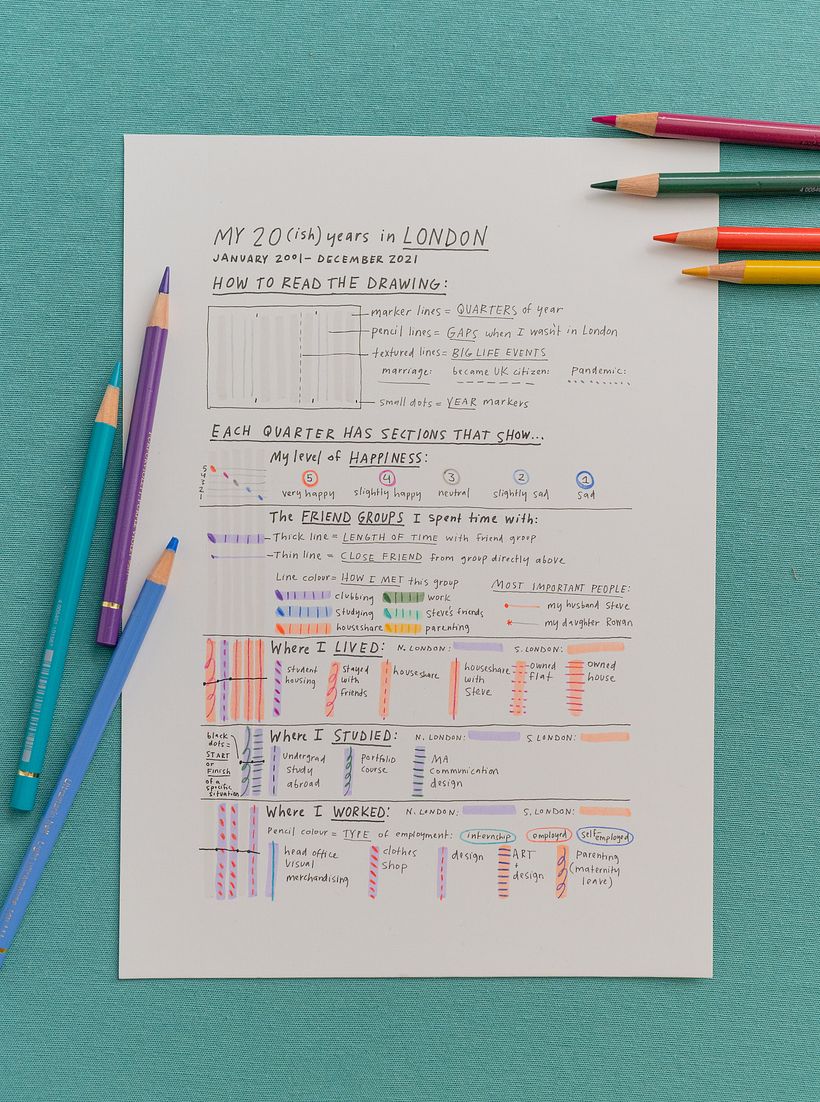 MY 20(ish) years in LONDON
JANUARY 2001 - DECEMBER 2021
HOW TO READ THE DRAWING:
marker lines = QUARTERS of year
pencil lines = GAPS when I wasn't in London
textured lines = BIG LIFE EVENTS
marriage: became UK citizen: Pandemic:
small dots = YEAR markers
EACH QUARTER HAS SECTIONS THAT SHOW...
My level of HAPPINESS:
5
4
3
2
1
5 4 3 2 1
very happy slightly happy neutral slightly sad sad
The FRIEND GROUPS I spent time with:
Thick line = LENGTH OF TIME with friend group
Thin line = CLOSE FRIEND from group directly above
Line colour = HOW I MET this group
clubbing work
studying Steve's friends
houseshare parenting
MOST IMPORTANT PEOPLE:
my husband Steve
my daughter Rowan
Where I LIVED: N. LONDON: S. LONDON:
student housing
stayed with friends
houseshare
houseshare with Steve
owned flat
owned house
Where I STUDIED: N. LONDON: S. LONDON:
black dots = START or FINISH of a specific situation
undergrad study abroad
portfolio course
MA communication design
Where I WORKED: N. LONDON: S. LONDON:
Pencil colour = TYPE of employment: internship employed self employed
head office visual merchandising
clothes shop
design
ART + design
parenting (maternity leave)